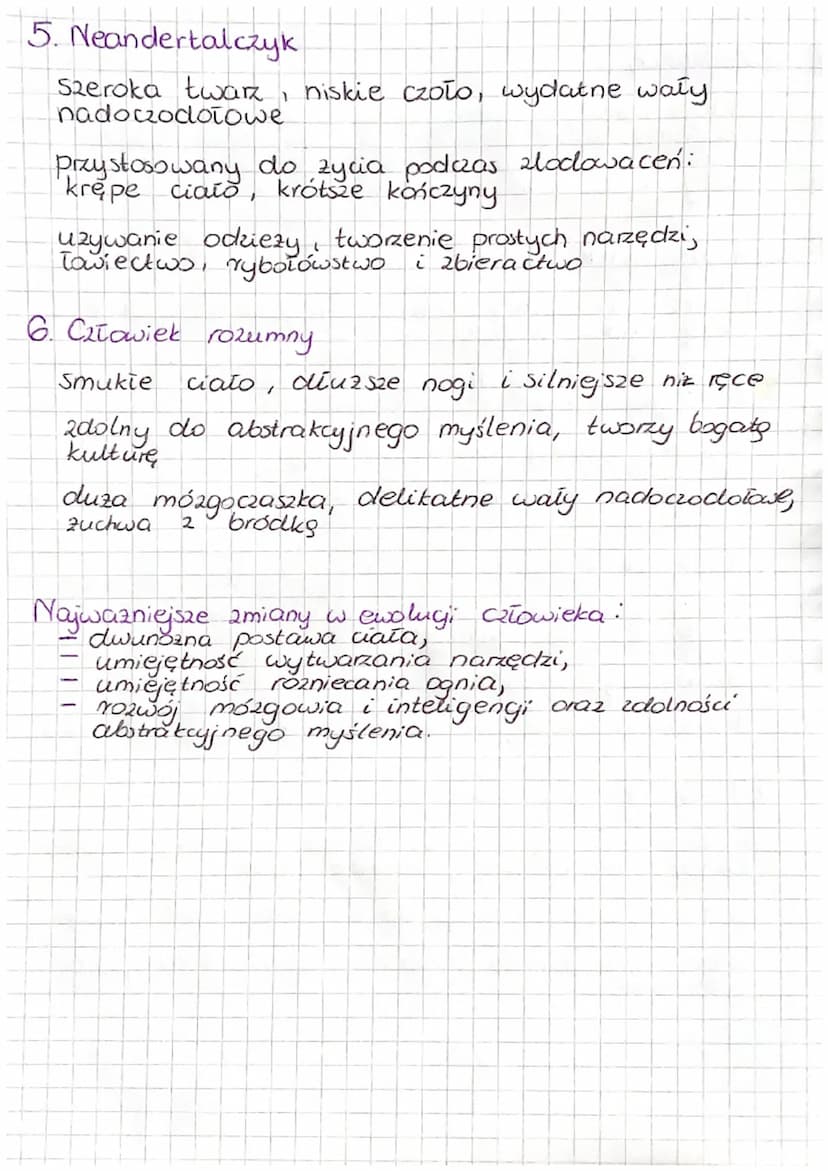 5. Neandertalczyk
szeroka twarz, niskie czoło, wydatne wały
nadoczodołowe
przystosowany do życia podczas zlodowaceń:
krępe ciało, krótsze kończyny
używanie odzieży, tworzenie prostych narzędzi,
łowiectwo, rybołówstwo i zbieractwo
6. Człowiek rozumny
smukłe ciało, dłuższe nogi i silniejsze niż ręce
zdolny do abstrakcyjnego myślenia, tworzy bogatą
kulturę
duża mózgoczaszka, delikatne wały nadoczodołowe,
żuchwa z bródką
Najważniejsze zmiany w ewolucji człowieka:
- dwunożna postawa ciała,
- umiejętność wytwarzania narzędzi,
- umiejętność rozniecania ognia,
- rozwój mózgowia i inteligencji oraz zdolności
abstrakcyjnego myślenia.